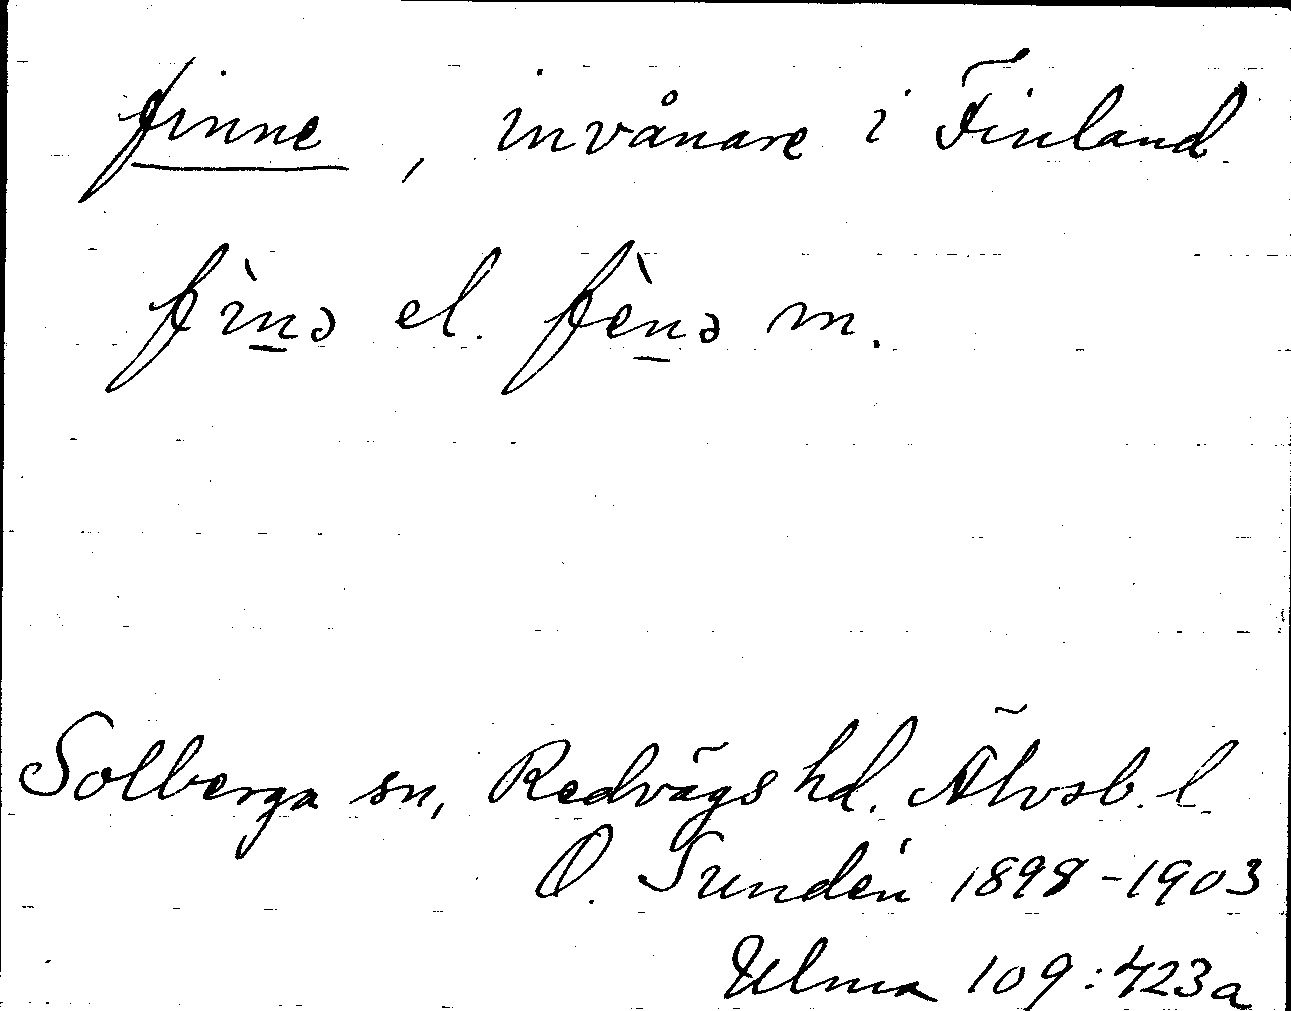 finne, invånare i Finland
fìn̲ə el. fèn̲ə m.
Solberga sn, Redvägs hd. Älvsb. l.
O. Sundén 1898-1903
Ulma 109:423a